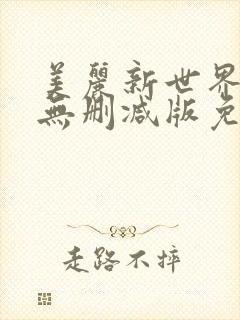 美麗新世界
無刪减版免
走路不摔